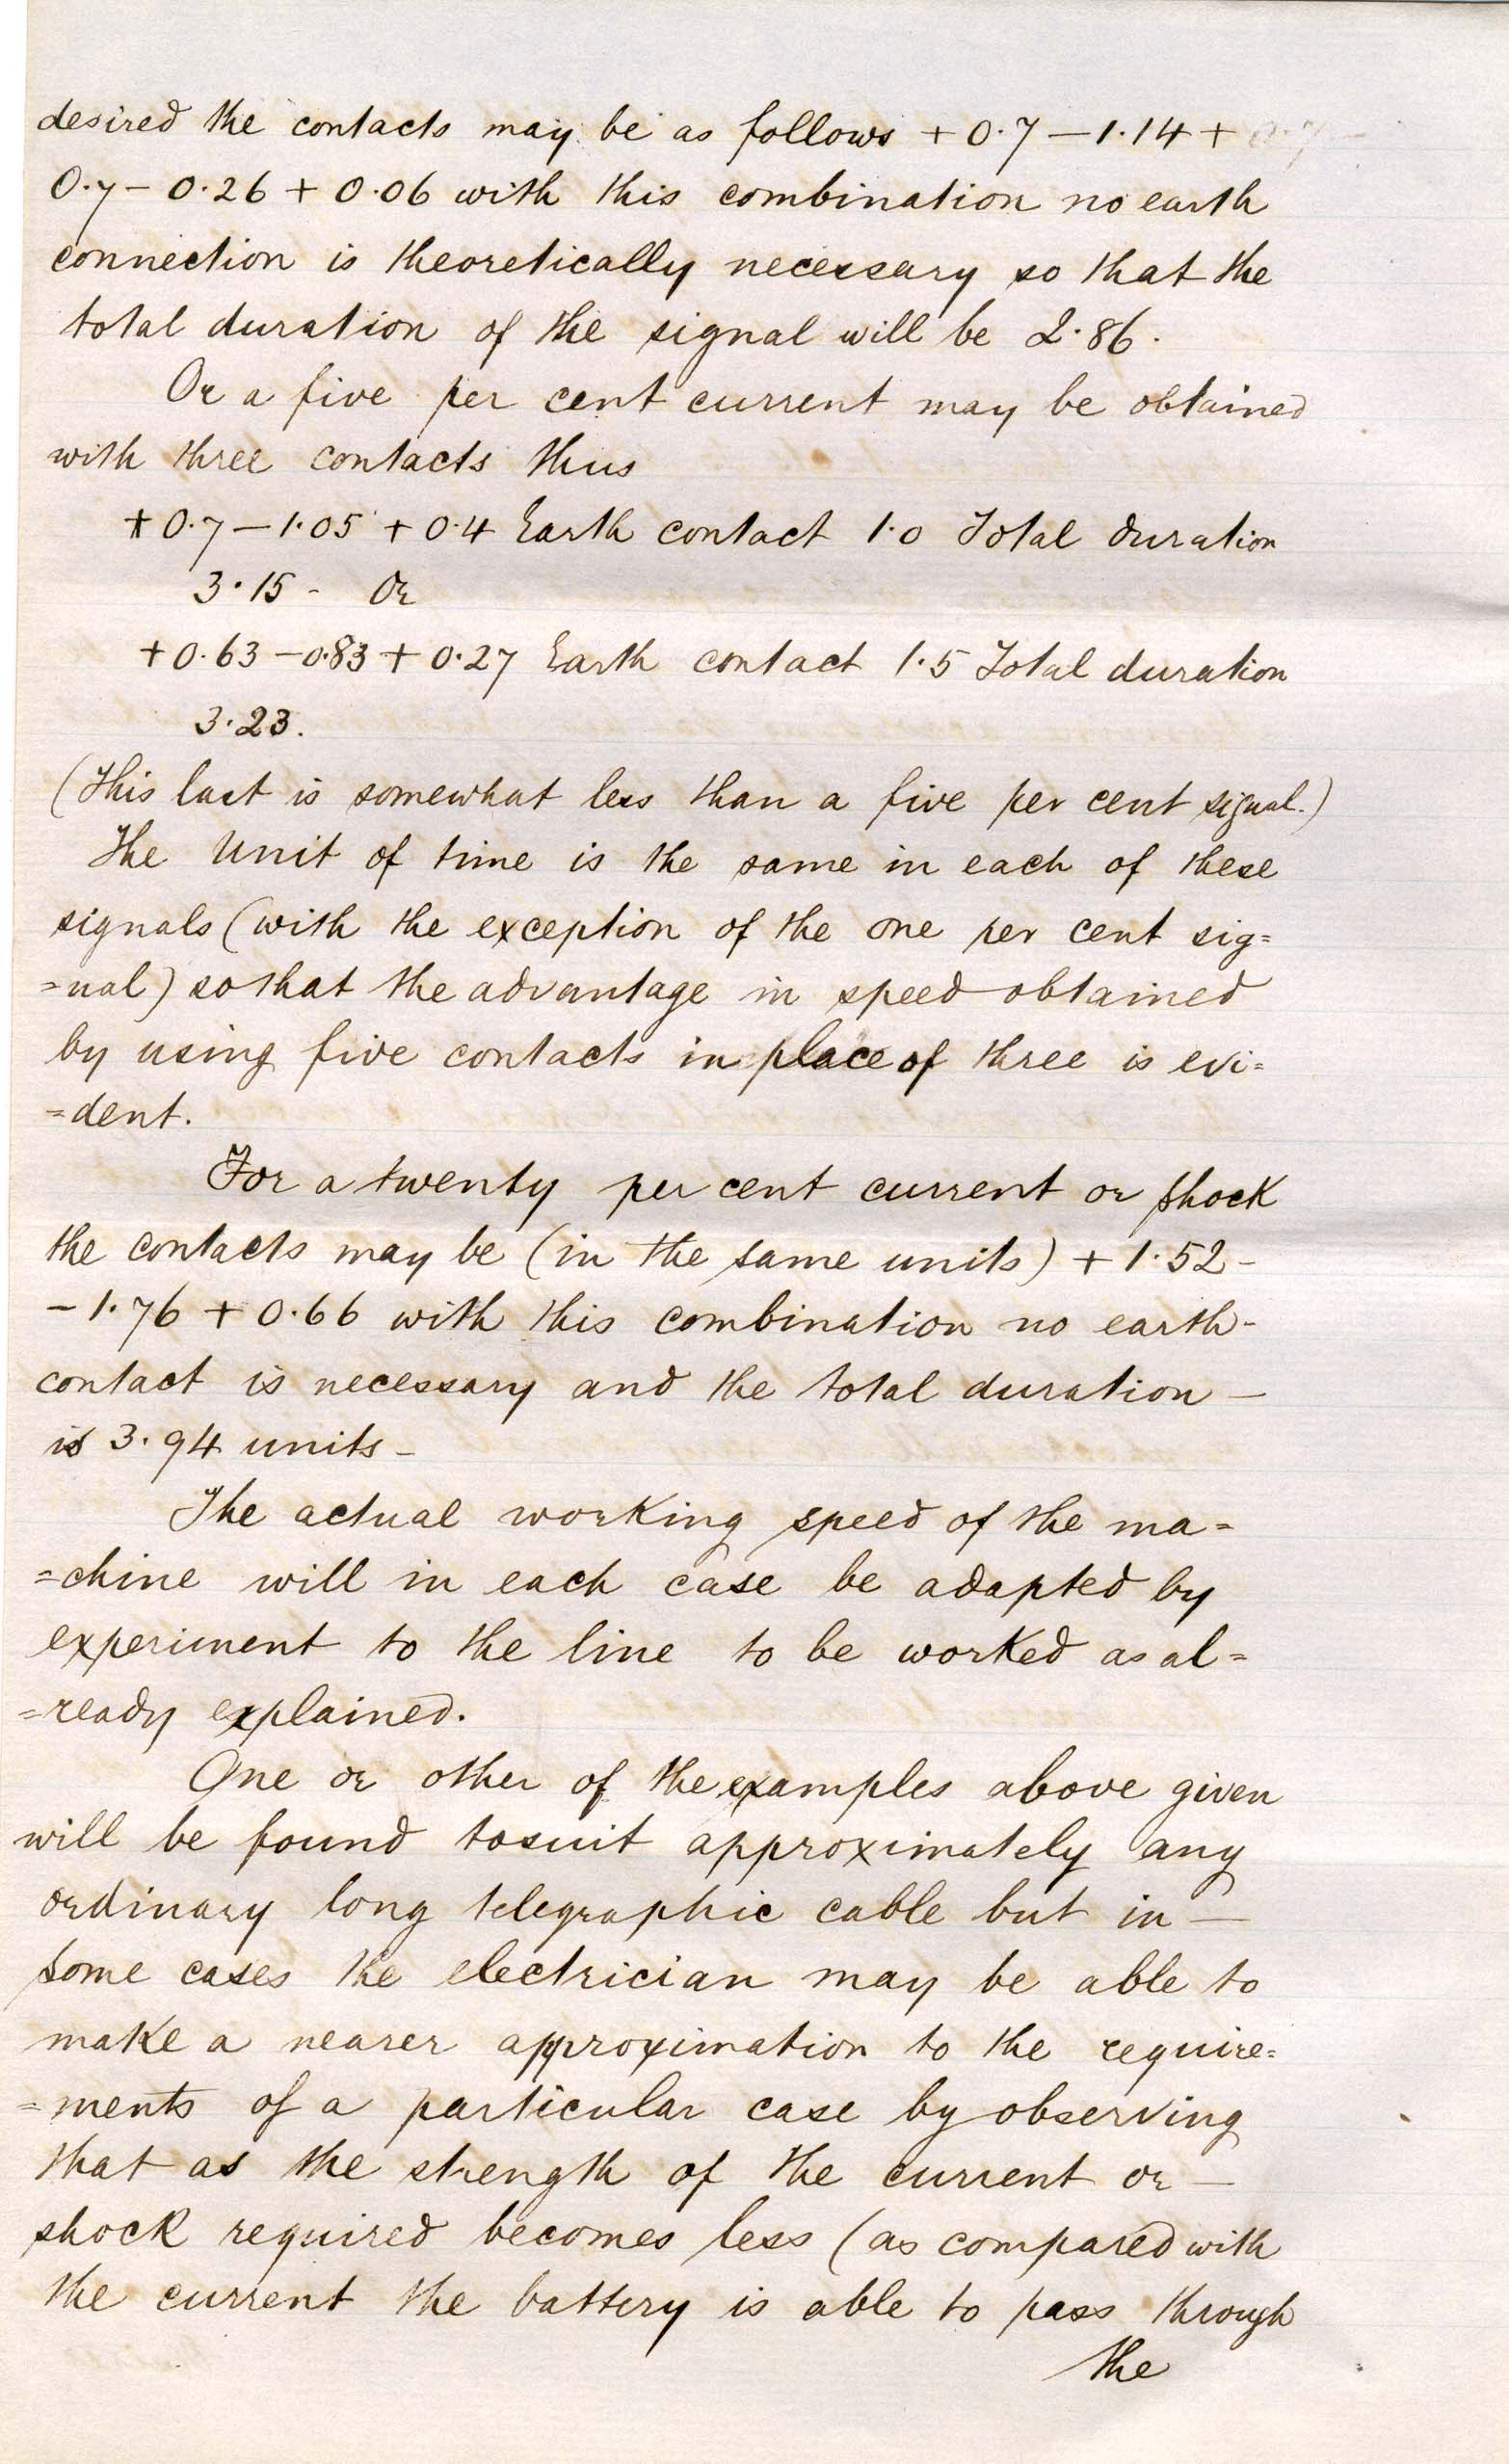 desired the contacts may be as follows + 0.7 — 1.14 +
0.7 - 0.26 + 0.06 with this combination no earth
connection is theoretically necessary so that the
total duration of the signal will be 2.86.
Or a five per cent current may be obtained
with three contacts thus
+ 0.7 — 1.05 + 0.4 Earth contact 1.0 Total duration
3.15 - Or
+ 0.63 - 0.83 + 0.27 Earth contact 1.5 Total duration
3.23.
(This last is somewhat less than a five per cent signal.)
The Unit of time is the same in each of these
signals (with the exception of the one per cent sig=
=nal) so that the advantage in speed obtained
by using five contacts in place of three is evi=
=dent.
For a twenty per cent current or shock
the contacts may be (in the same units) + 1.52 -
- 1.76 + 0.66 with this combination no earth-
contact is necessary and the total duration —
is 3.94 units -
The actual working speed of the ma=
=chine will in each case be adapted by
experiment to the line to be worked as al=
=ready explained.
One or other of the examples above given
will be found to suit approximately any
ordinary long telegraphic cable but in —
some cases the electrician may be able to
make a nearer approximation to the require=
=ments of a particular case by observing
that as the strength of the current or —
shock required becomes less (as compared with
the current the battery is able to pass through
the